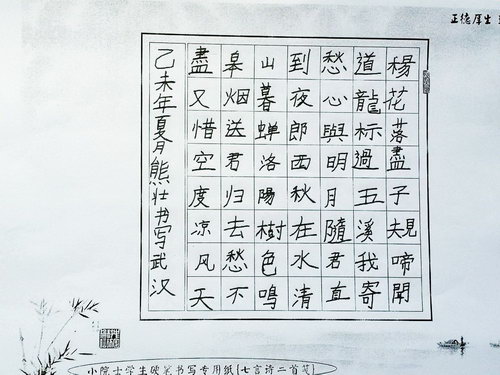 正德厚生
楊花落盡子規啼聞
道龍标過五溪我寄
愁心與明月隨君直
到夜郎西秋在水清
山暮蝉洛陽樹色鳴
皋烟送君归去愁不
盡又惜空度凉风天
乙未年夏月熊壮书写武汉
小院士学生硬笔书写专用纸{七言诗二首笺}